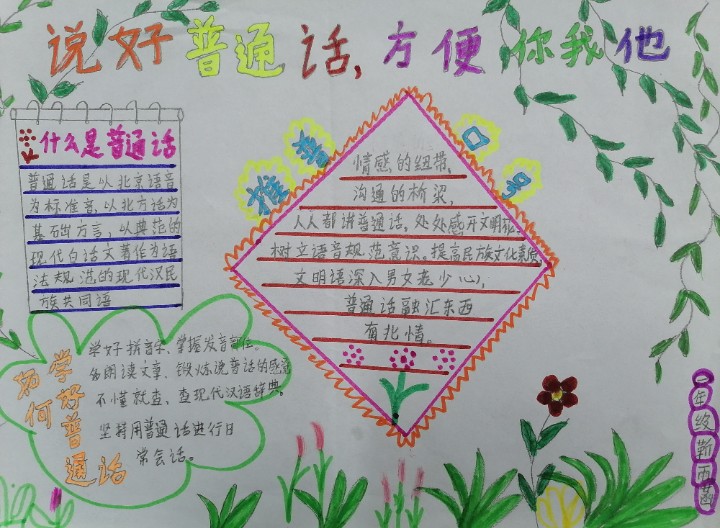 说好普通话,方便你我他
什么是普通话
普通话是以北京语音
为标准音,以北方话为
基础方言,以典范的
现代白话文著作为语
法规范的现代汉民
族共同语
推普
口号
情感的纽带,
沟通的桥梁,
人人都讲普通话,处处感开文明
树立语音规范意识,提高民族文化素质
文明语深入男女老少心,
普通话融汇东西
南北情。
如何学好普通话
学好拼音、掌握发音部位。
多朗读文章、锻炼说普话的感觉
不懂就查,查现代汉语辞典。
坚持用普通话进行日
常会话。
一年级靳雨菡